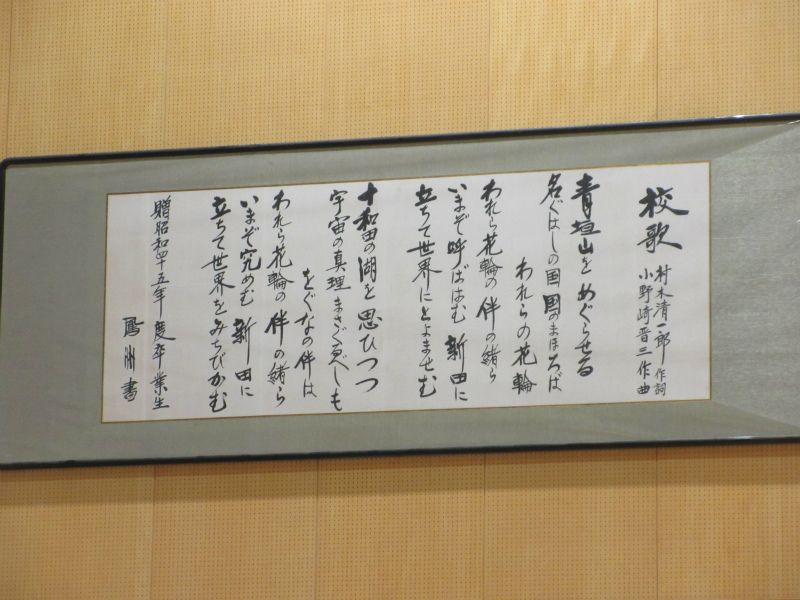 校歌
村木清一郎 作詞
小野崎晋三 作曲
青垣山を めぐらせる
名ぐはしの国 国のまほろば
われらの花輪
われら花輪の 伴の緒ら
いまぞ呼ばはむ 新田に
立ちて世界に とよませむ
十和田の湖を 思ひつつ
宇宙の真理 まさぐゑしも
をぐなの伴は
われら花輪の 伴の緒ら
いまぞ究めむ 新田に
立ちて世界を みちびかむ
贈昭和四十五年度卒業生
書